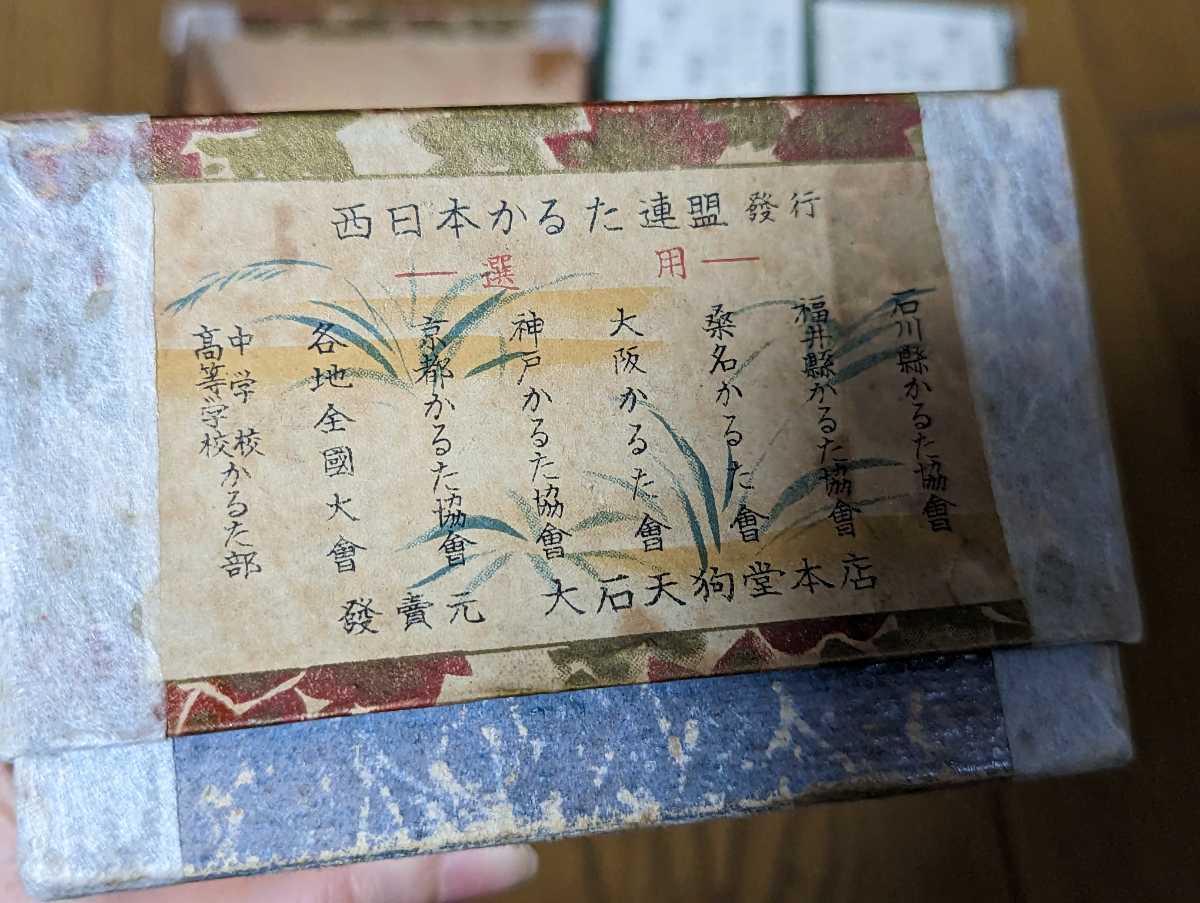 西日本かるた連盟 發行
—選 用—
石川縣かるた協會
福井縣かるた協會
桑名かるた會
大阪かるた會
神戸かるた協會
京都かるた協會
各地全國大會
中学校
高等学校かるた部
發賣元 大石天狗堂本店